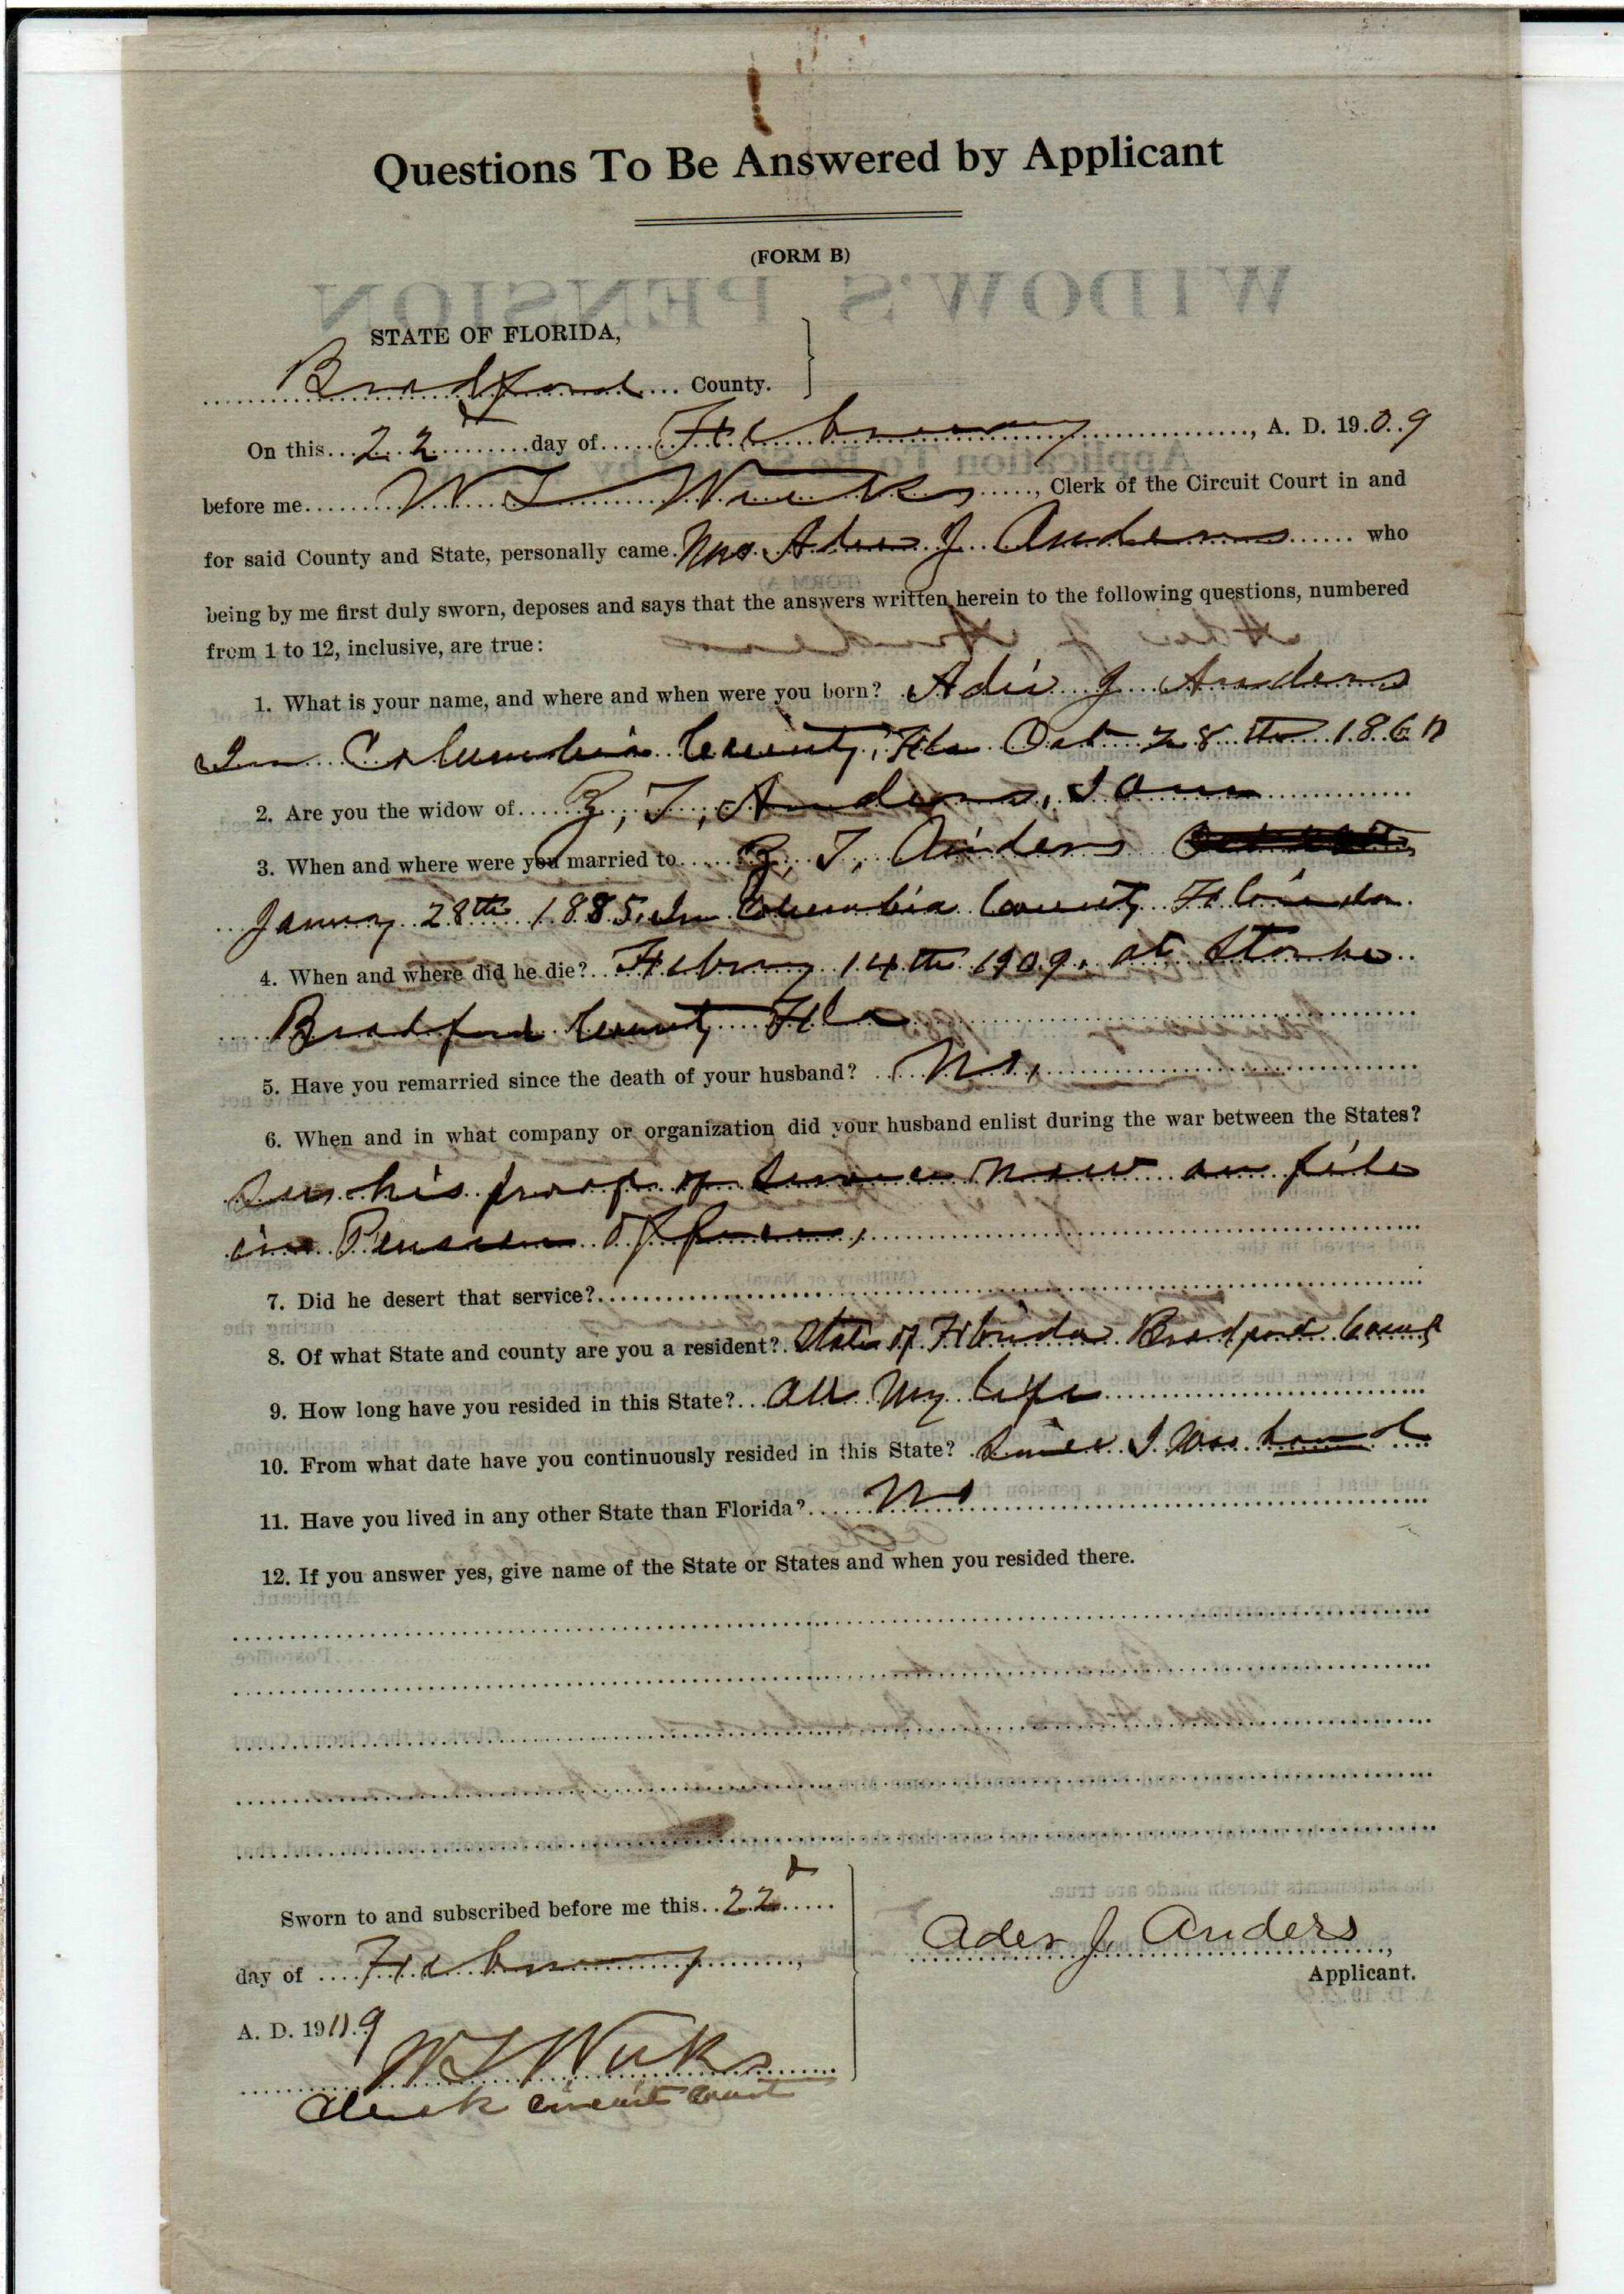 Questions To Be Answered by Applicant
(FORM B)
STATE OF FLORIDA,
Bradford County.
On this 22d day of February, A. D. 1909
before me W T Weeks, Clerk of the Circuit Court in and
for said County and State, personally came Mrs J Anders who
being by me first duly sworn, deposes and says that the answers written herein to the following questions, numbered
from 1 to 12, inclusive, are true:
1. What is your name, and where and when were you born? Adie J Anders
In Columbia County, Fla Oct 28th 1860
2. Are you the widow of Z, T, Anders, I am
3. When and where were you married to Z, T, Anders
January 28th 1885 In Columbia County Florida
4. When and where did he die? Febury 14th 1909. at Starke
Bradford County Fla
5. Have you remarried since the death of your husband? No,
6. When and in what company or organization did your husband enlist during the war between the States?
See his proof of Service Now on file
in Pension Office,
7. Did he desert that service?
8. Of what State and county are you a resident? State of Florida Bradford County
9. How long have you resided in this State? All My life
10. From what date have you continuously resided in this State? Since I Was born
11. Have you lived in any other State than Florida? No
12. If you answer yes, give name of the State or States and when you resided there.
Sworn to and subscribed before me this 22d
day of February,
A. D. 1909
W T Weeks
Clerk circuit court
Ader J. Anders,
Applicant.